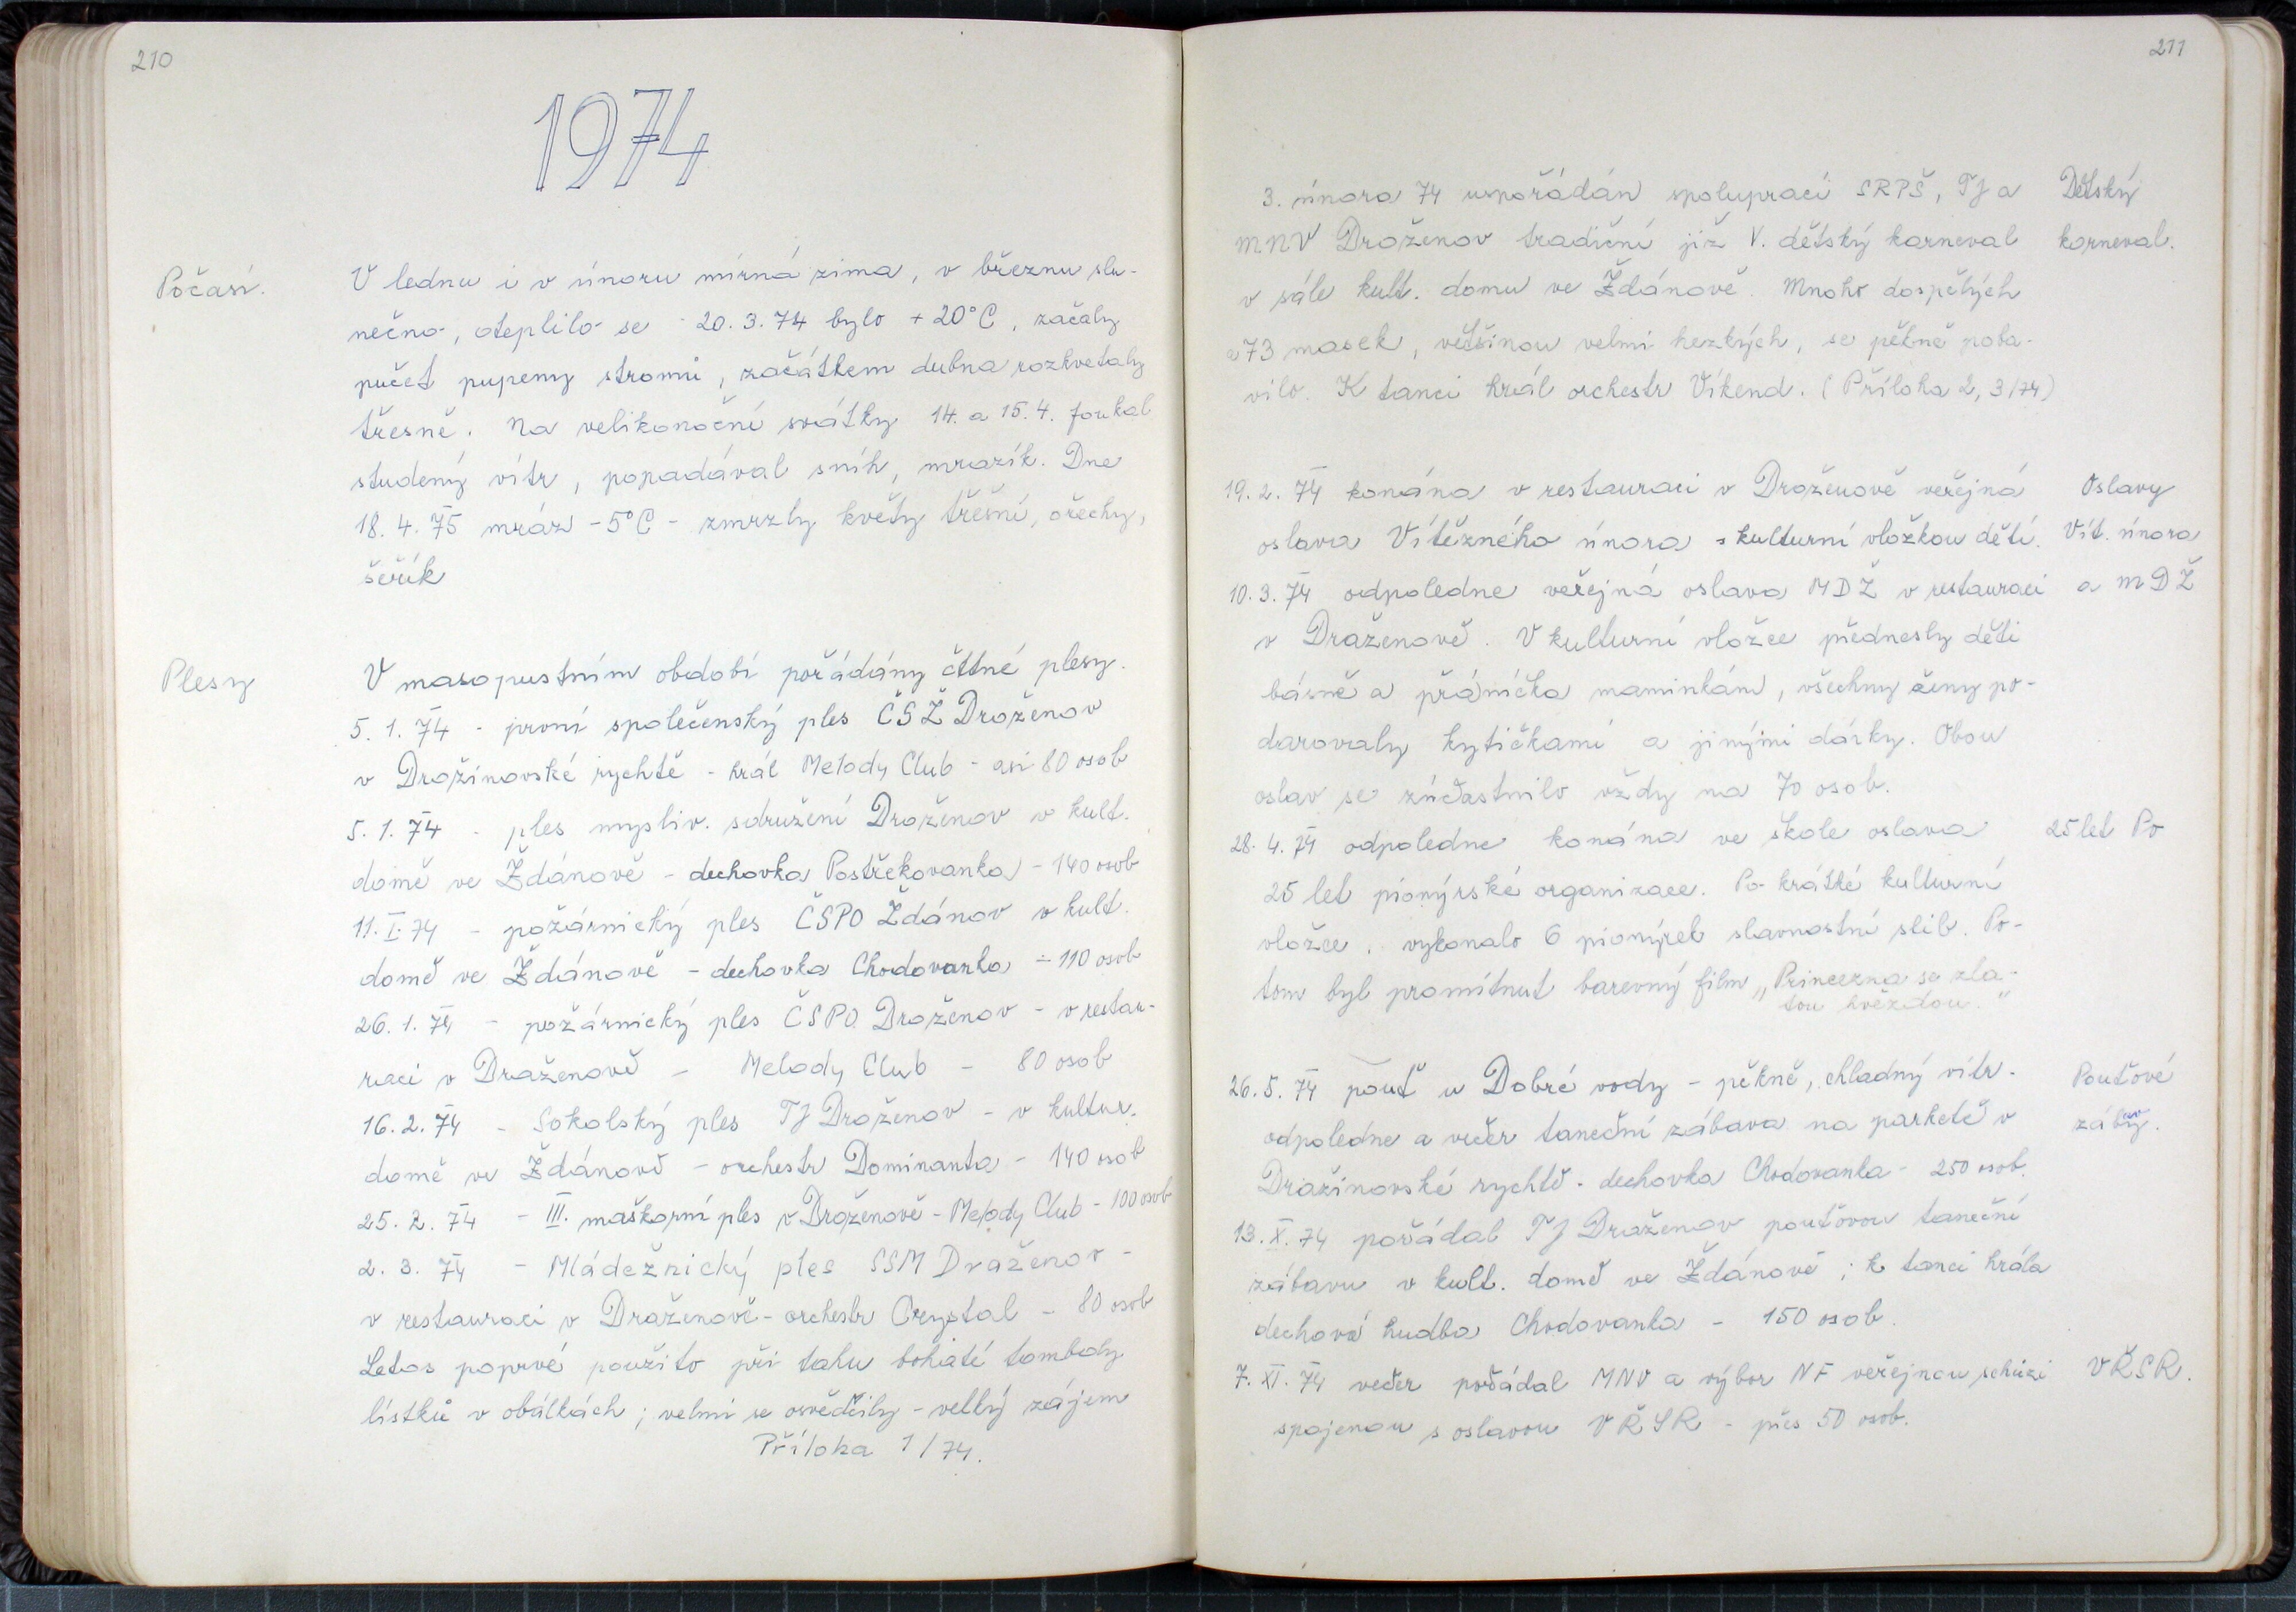 210
1974
Počasí.
V lednu i v únoru mírná zima, v březnu slu-
nečno, oteplilo se - 20. 3. 74 bylo + 20°C, začaly
pučet pupeny stromů, začátkem dubna rozkvetaly
třešně. Na velikonoční svátky 14. a 15. 4. foukal
studený vítr, popadával sníh, mrazík. Dne
18. 4. 75 mráz -5°C - zmrzly květy třešní, ořechy,
šeřík
Plesy
V masopustním období pořádány čttné plesy.
5. 1. 74 - první společenský ples ČSŽ Draženov
v Dražinovské rychtě - hrál Melody Club - asi 80 osob
5. 1. 74 - ples mysliv. sdružení Draženov v kult.
domě ve Ždánově - dechovka Postřekovanka - 140 osob
11. I. 74 - požárnický ples ČSPO Ždánov v kult.
domě ve Ždánově - dechovka Chodovanka - 110 osob
26. 1. 74 - požárnický ples ČSPO Draženov - v restau-
raci v Draženově - Melody Club - 80 osob
16. 2. 74 - Sokolský ples TJ Draženov - v kultur.
domě ve Ždánově - orchestr Dominanta - 140 osob
25. 2. 74 - III. maškarní ples v Draženově - Melody Club - 100 osob
2. 3. 74 - Mládežnický ples SSM Draženov -
v restauraci v Draženově - orchestr Cryptal - 80 osob
Letos poprvé použito při tahu bohaté tomboly
lístků v obálkách; velmi se osvědčily - velký zájem
Příloha 1/74.
211
3. února 74 uspořádán spoluprací SRPŠ, TJ a
MNV Draženov tradiční již V. dětský karneval
v sále kult. domu ve Ždánově. Mnoho dospělých
a 73 masek, většinou velmi hezkých, se pěkně poba-
vilo. K tanci hrál orchestr Víkend. (Příloha 2, 3/74)
Dětský
karneval.
19. 2. 74 konána v restauraci v Draženově veřejná
oslava Vítězného února s kulturní vložkou dětí.
10. 3. 74 odpoledne veřejná oslava MDŽ v restauraci
v Draženově. V kulturní vložce přednesly děti
básně a přáníčka maminkám, všechny ženy po-
darovaly kytičkami a jinými dárky. Obou
oslav se zúčastnilo vždy na 70 osob.
Oslavy
Vít. února
a MDŽ
28. 4. 74 odpoledne konána ve škole oslava
25 let pionýrské organizace. Po krátké kulturní
vložce, vykonalo 6 pionýrek slavnostní slib. Po-
tom byl promítnut barevný film „Princezna se zla-
tou hvězdou."
25 let Po
26. 5. 74 pouť u Dobré vody - pěkně, chladný vítr.
odpoledne a večer taneční zábava na parketě v
Dražinovské rychtě - dechovka Chodovanka - 250 osob.
13. X. 74 pořádal TJ Draženov pouťovou taneční
zábavu v kult. domě ve Ždánově; k tanci hrála
dechová hudba Chodovanka - 150 osob.
Pouťové
zábavy.
7. XI. 74 večer pořádal MNV a výbor NF veřejnou schůzi
spojenou s oslavou VŘSR - přes 50 osob.
VŘSR.